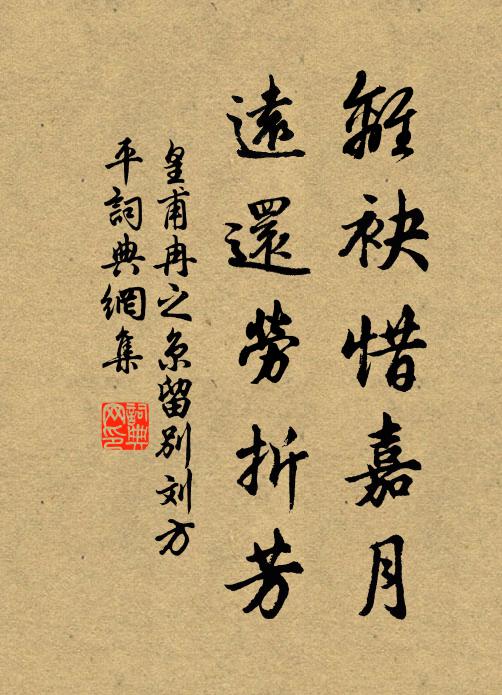 離袂惜嘉月
遠還勞折芳
皇甫冉之京留別刘方
平詞典網集
詞典
网印